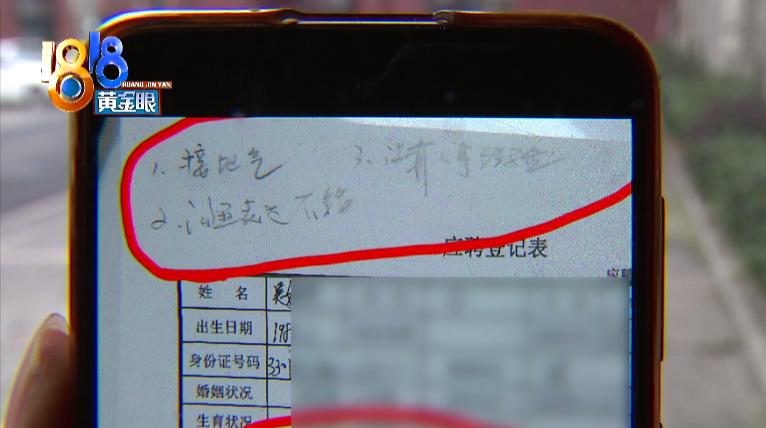 1818
HUANG JIN YAN
黄金眼
1、接地气 3、没有人事经验
2、沟通表达不错
应聘登记表
应聘
姓 名 吴
出生日期 198
身份证号码 330
婚姻状况
生育状况